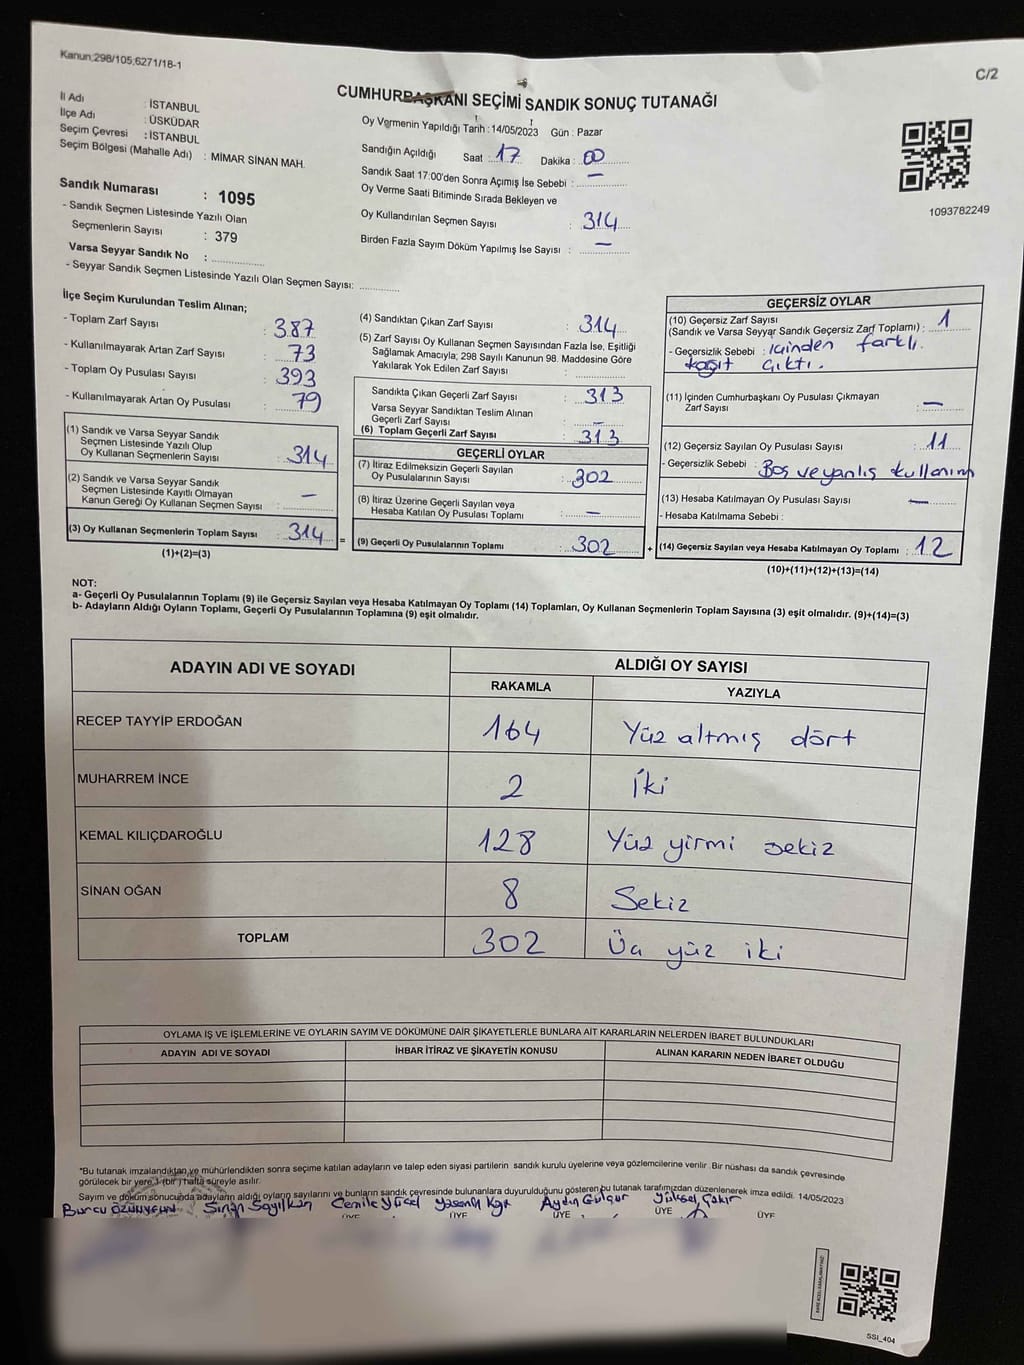 Kanun;298/105,6271/18-1
C/2
CUMHURBAŞKANI SEÇİMİ SANDIK SONUÇ TUTANAĞI
İl Adı : İSTANBUL
İlçe Adı : ÜSKÜDAR
Seçim Çevresi : İSTANBUL
Seçim Bölgesi (Mahalle Adı) : MİMAR SİNAN MAH.
Sandık Numarası : 1095
- Sandık Seçmen Listesinde Yazılı Olan
Seçmenlerin Sayısı : 379
Varsa Seyyar Sandık No :
- Seyyar Sandık Seçmen Listesinde Yazılı Olan Seçmen Sayısı:
Oy Vermenin Yapıldığı Tarih : 14/05/2023 Gün : Pazar
Sandığın Açıldığı Saat : 17 Dakika : 00
Sandık Saat 17:00'den Sonra Açımış İse Sebebi : —
Oy Verme Saati Bitiminde Sırada Bekleyen ve
Oy Kullandırılan Seçmen Sayısı : 314
Birden Fazla Sayım Döküm Yapılmış İse Sayısı : —
1093782249
İlçe Seçim Kurulundan Teslim Alınan;
- Toplam Zarf Sayısı : 387
- Kullanılmayarak Artan Zarf Sayısı : 73
- Toplam Oy Pusulası Sayısı : 393
- Kullanılmayarak Artan Oy Pusulası : 79
(1) Sandık ve Varsa Seyyar Sandık
Seçmen Listesinde Yazılı Olup
Oy Kullanan Seçmenlerin Sayısı : 314
(2) Sandık ve Varsa Seyyar Sandık
Seçmen Listesinde Kayıtlı Olmayan
Kanun Gereği Oy Kullanan Seçmen Sayısı : —
(3) Oy Kullanan Seçmenlerin Toplam Sayısı : 314
(1)+(2)=(3)
(4) Sandıktan Çıkan Zarf Sayısı : 314
(5) Zarf Sayısı Oy Kullanan Seçmen Sayısından Fazla İse, Eşitliği
Sağlamak Amacıyla; 298 Sayılı Kanunun 98. Maddesine Göre
Yakılarak Yok Edilen Zarf Sayısı :
Sandıkta Çıkan Geçerli Zarf Sayısı : 313
Varsa Seyyar Sandıktan Teslim Alınan
Geçerli Zarf Sayısı : —
(6) Toplam Geçerli Zarf Sayısı : 313
GEÇERLİ OYLAR
(7) İtiraz Edilmeksizin Geçerli Sayılan
Oy Pusulalarının Sayısı : 302
(8) İtiraz Üzerine Geçerli Sayılan veya
Hesaba Katılan Oy Pusulası Toplamı : —
= (9) Geçerli Oy Pusulalarının Toplamı : 302
GEÇERSİZ OYLAR
(10) Geçersiz Zarf Sayısı
(Sandık ve Varsa Seyyar Sandık Geçersiz Zarf Toplamı) : 1
- Geçersizlik Sebebi : İçinden farklı.
kağıt çıktı.
(11) İçinden Cumhurbaşkanı Oy Pusulası Çıkmayan
Zarf Sayısı : —
(12) Geçersiz Sayılan Oy Pusulası Sayısı : 11
- Geçersizlik Sebebi : Boş ve yanlış kullanım
(13) Hesaba Katılmayan Oy Pusulası Sayısı : —
- Hesaba Katılmama Sebebi :
+ (14) Geçersiz Sayılan veya Hesaba Katılmayan Oy Toplamı : 12
(10)+(11)+(12)+(13)=(14)
NOT:
a- Geçerli Oy Pusulalarının Toplamı (9) ile Geçersiz Sayılan veya Hesaba Katılmayan Oy Toplamı (14) Toplamları, Oy Kullanan Seçmenlerin Toplam Sayısına (3) eşit olmalıdır. (9)+(14)=(3)
b- Adayların Aldığı Oyların Toplamı, Geçerli Oy Pusulalarının Toplamına (9) eşit olmalıdır.
ADAYIN ADI VE SOYADI
ALDIĞI OY SAYISI
RAKAMLA YAZIYLA
RECEP TAYYİP ERDOĞAN 164 Yüz altmış dört
MUHARREM İNCE 2 İki
KEMAL KILIÇDAROĞLU 128 Yüz yirmi sekiz
SİNAN OĞAN 8 Sekiz
TOPLAM 302 Üç yüz iki
OYLAMA İŞ VE İŞLEMLERİNE VE OYLARIN SAYIM VE DÖKÜMÜNE DAİR ŞİKAYETLERLE BUNLARA AİT KARARLARIN NELERDEN İBARET BULUNDUKLARI
ADAYIN ADI VE SOYADI
İHBAR İTİRAZ VE ŞİKAYETİN KONUSU
ALINAN KARARIN NEDEN İBARET OLDUĞU
*Bu tutanak imzalandıktan ve mühürlendikten sonra seçime katılan adayların ve talep eden siyasi partilerin sandık kurulu üyelerine veya gözlemcilerine verilir. Bir nüshası da sandık çevresinde
görülecek bir yere 1 (bir) hafta süreyle asılır.
Sayım ve döküm sonucunda adayların aldığı oyların sayılarını ve bunların sandık çevresinde bulunanlara duyurulduğunu gösteren bu tutanak tarafımızdan düzenlenerek imza edildi. 14/05/2023
Burcu Sinan Cemile Yücel Aydın Yüksel Çakır
ÜYE ÜYE ÜYE ÜYE ÜYE
SSI_404